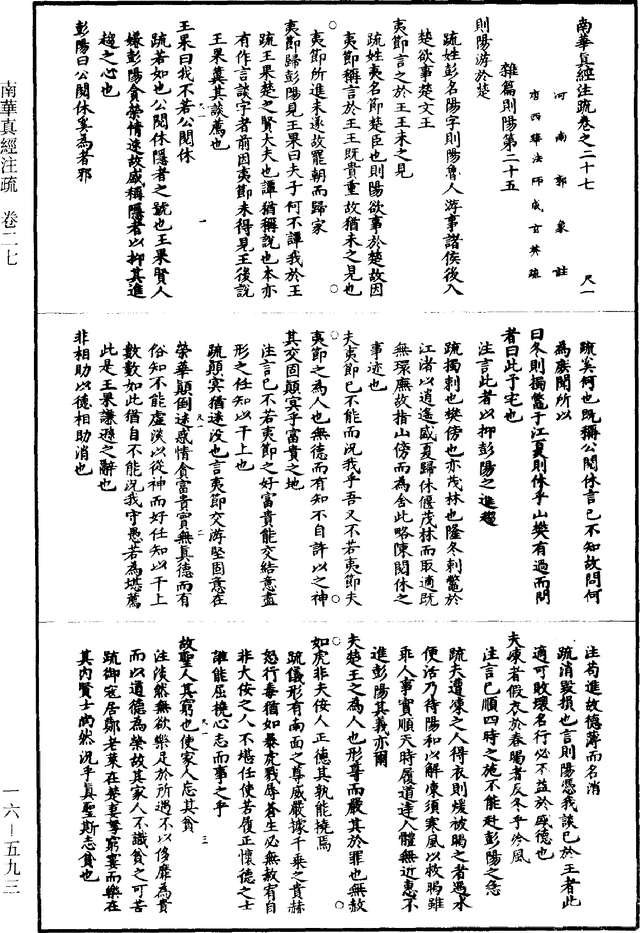 南華真經注疏卷之二十七　尺一
河南郭象註
唐西華法師成玄英疏
雜篇則陽第二十五
則陽游於楚
疏姓彭名陽字則陽魯人游事諸侯後入
楚欲事楚文王
夷節言之於王王未之見
疏姓夷名節楚臣也則陽欲事於楚故因
夷節稱言於王王既貴重故猶未之見也
夷節所進未遂故罷朝而歸家
夷節歸彭陽見王果曰夫子何不譚我於王
疏王果楚之賢大夫也譚猶稱說也本亦
有作言談字者前因夷節未得見王後說
王果冀其談薦也
王果曰我不若公閱休
疏若如也公閱休隱者之號也王果賢人
嫌彭陽貪榮情速故盛稱隱者以抑其進
趨之心也
彭陽曰公閱休奚為者邪
尺一
一
疏奚何也既稱公閱休言已不知故問何
為庶聞所以
曰冬則擉鱉于江夏則休乎山樊有過而問
者曰此予宅也
注言此者以抑彭陽之進趨
疏擉刺也樊傍也亦茂林也隆冬刺鱉於
江渚以逍遙盛夏歸休偃茂林而取適既
無環廡故指山傍而為舍此略陳閱休之
事迹也
夫夷節已不能而況我乎吾又不若夷節夫
夷節之為人也無德而有知不自許以之神
其交固顛冥乎富貴之地
注言已不若夷節之好富貴能交結意盡
形之任知以干上也
疏顛冥猶迷沒也言夷節交游堅固意在
榮華顛倒迷惑情貪富貴實無真德而有
俗知不能虛淡以從神而好任知以干上
數數如此猶自不能況我守愚若為堪薦
此是王果謙遜之辭也
非相助以德相助消也
尺一
二
注苟進故德薄而名消
疏消毀損也言則陽憑我談已於王者此
適可敗壞名行必不益於盛德也
夫凍者假衣於春暍者反冬乎冷風
注言已順四時之施不能赴彭陽之急
疏夫遭凍之人得衣則煖被暍之者遇水
便活乃待陽和以解凍須寒風以救暍雖
乖人事實順天時履道達人體無近惠不
進彭陽其義亦爾
夫楚王之為人也形尊而嚴其於罪也無赦
如虎非夫佞人正德其孰能撓焉
疏儀形有南面之尊威嚴據千乘之貴赫
怒行毒猶如暴虎戮辱蒼生必無赦宥自
非大佞之人不堪任使若履正懷德之士
誰能屈撓心志而事之乎
故聖人其窮也使家人忘其貧
注淡然無欲樂足於所遇不以侈靡為貴
而以道德為榮故其家人不識貧之可苦
疏御寇居鄭老萊在楚妻孥窮窶而樂在
其內賢士尚然況乎真聖斯忘貧也
尺一
三
南華真經注疏　卷二七
一六—五九三